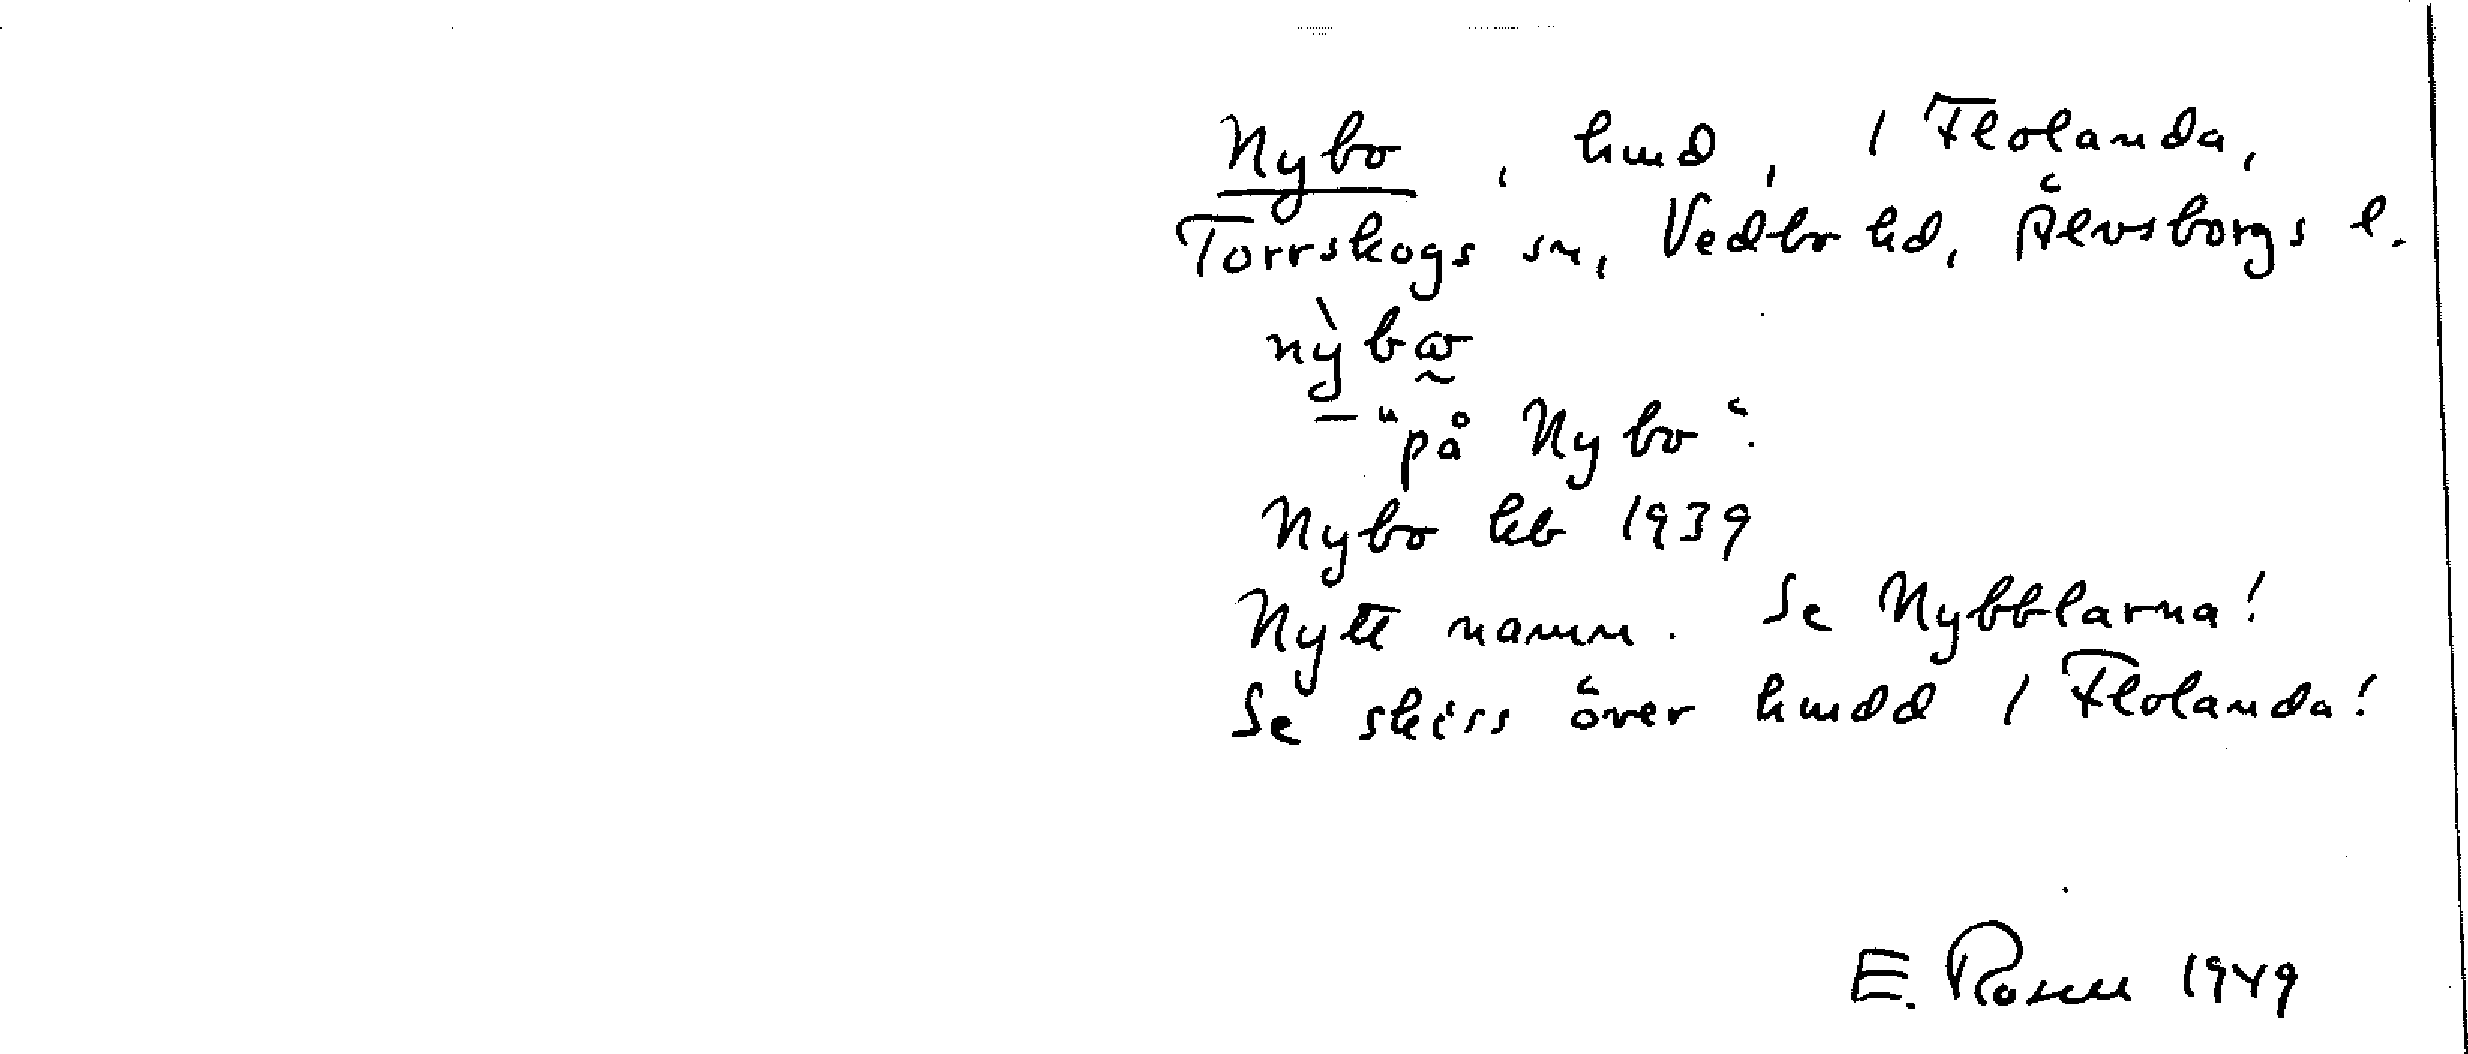 Nybo, hmd, 1 Flolanda,
Torrskogs sn, Vedbo hd, Älvsborgs l.
nỳbω̰
– "på Nybo".
Nybo kb 1939
Nytt namn. Se Nybblarna!
Se skiss över hmdd 1 Flolanda!
E. Rosell 1949